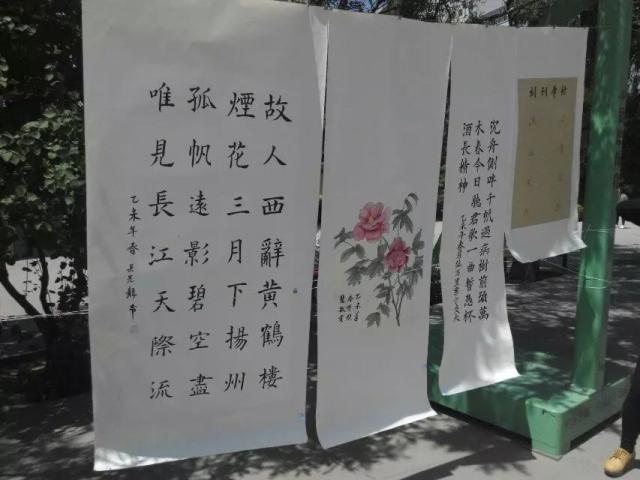 故人西辭黃鶴樓
煙花三月下揚州
孤帆遠影碧空盡
唯見長江天際流
乙未年春
沉舟側畔千帆過病樹前頭萬
木春今日聽君歌一曲暫憑杯
酒長精神
乙未年春月